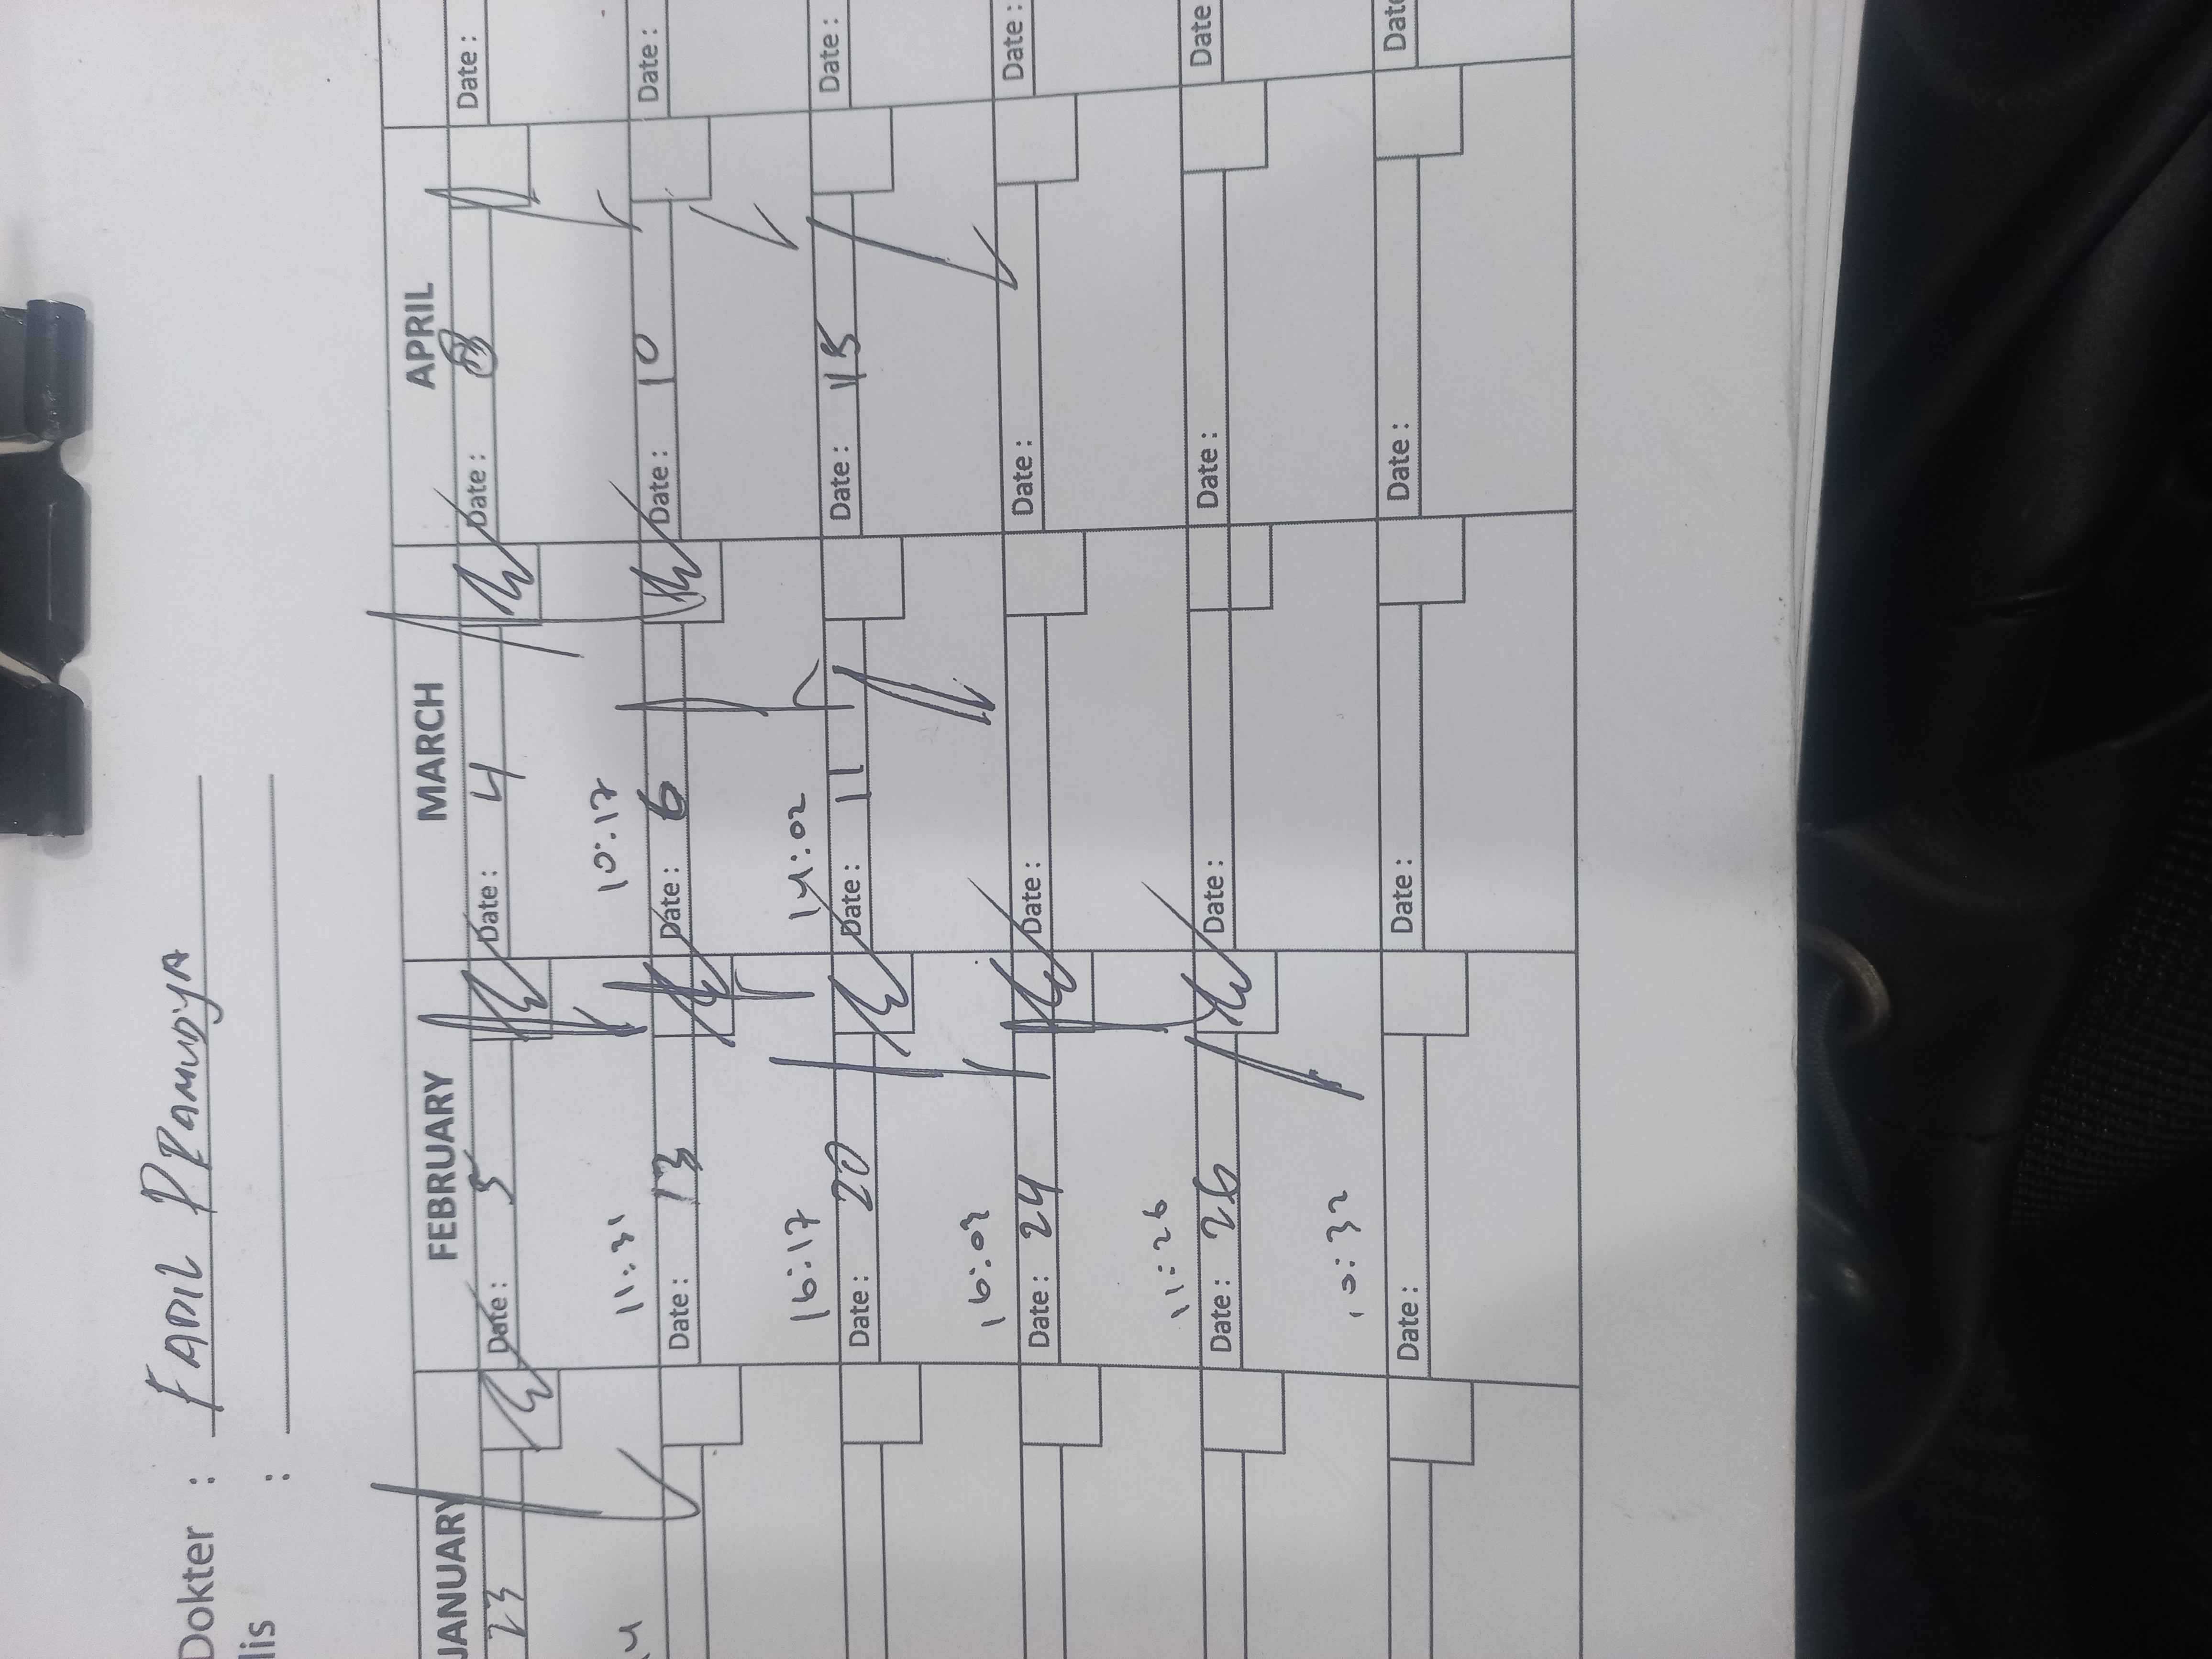 Dokter : FADIL PRAMUDYA
lis :
JANUARY FEBRUARY MARCH APRIL
23 Date : 5 Date : 4 Date : 8 Date :
11:31 10:17
Date : 13 Date : 6 Date : 10 Date :
16:17 14:02
Date : 20 Date : 11 Date : 15 Date :
16:03
Date : 24 Date : Date : Date :
11:26
Date : 26 Date : Date : Date
10:32
Date : Date : Date : Date